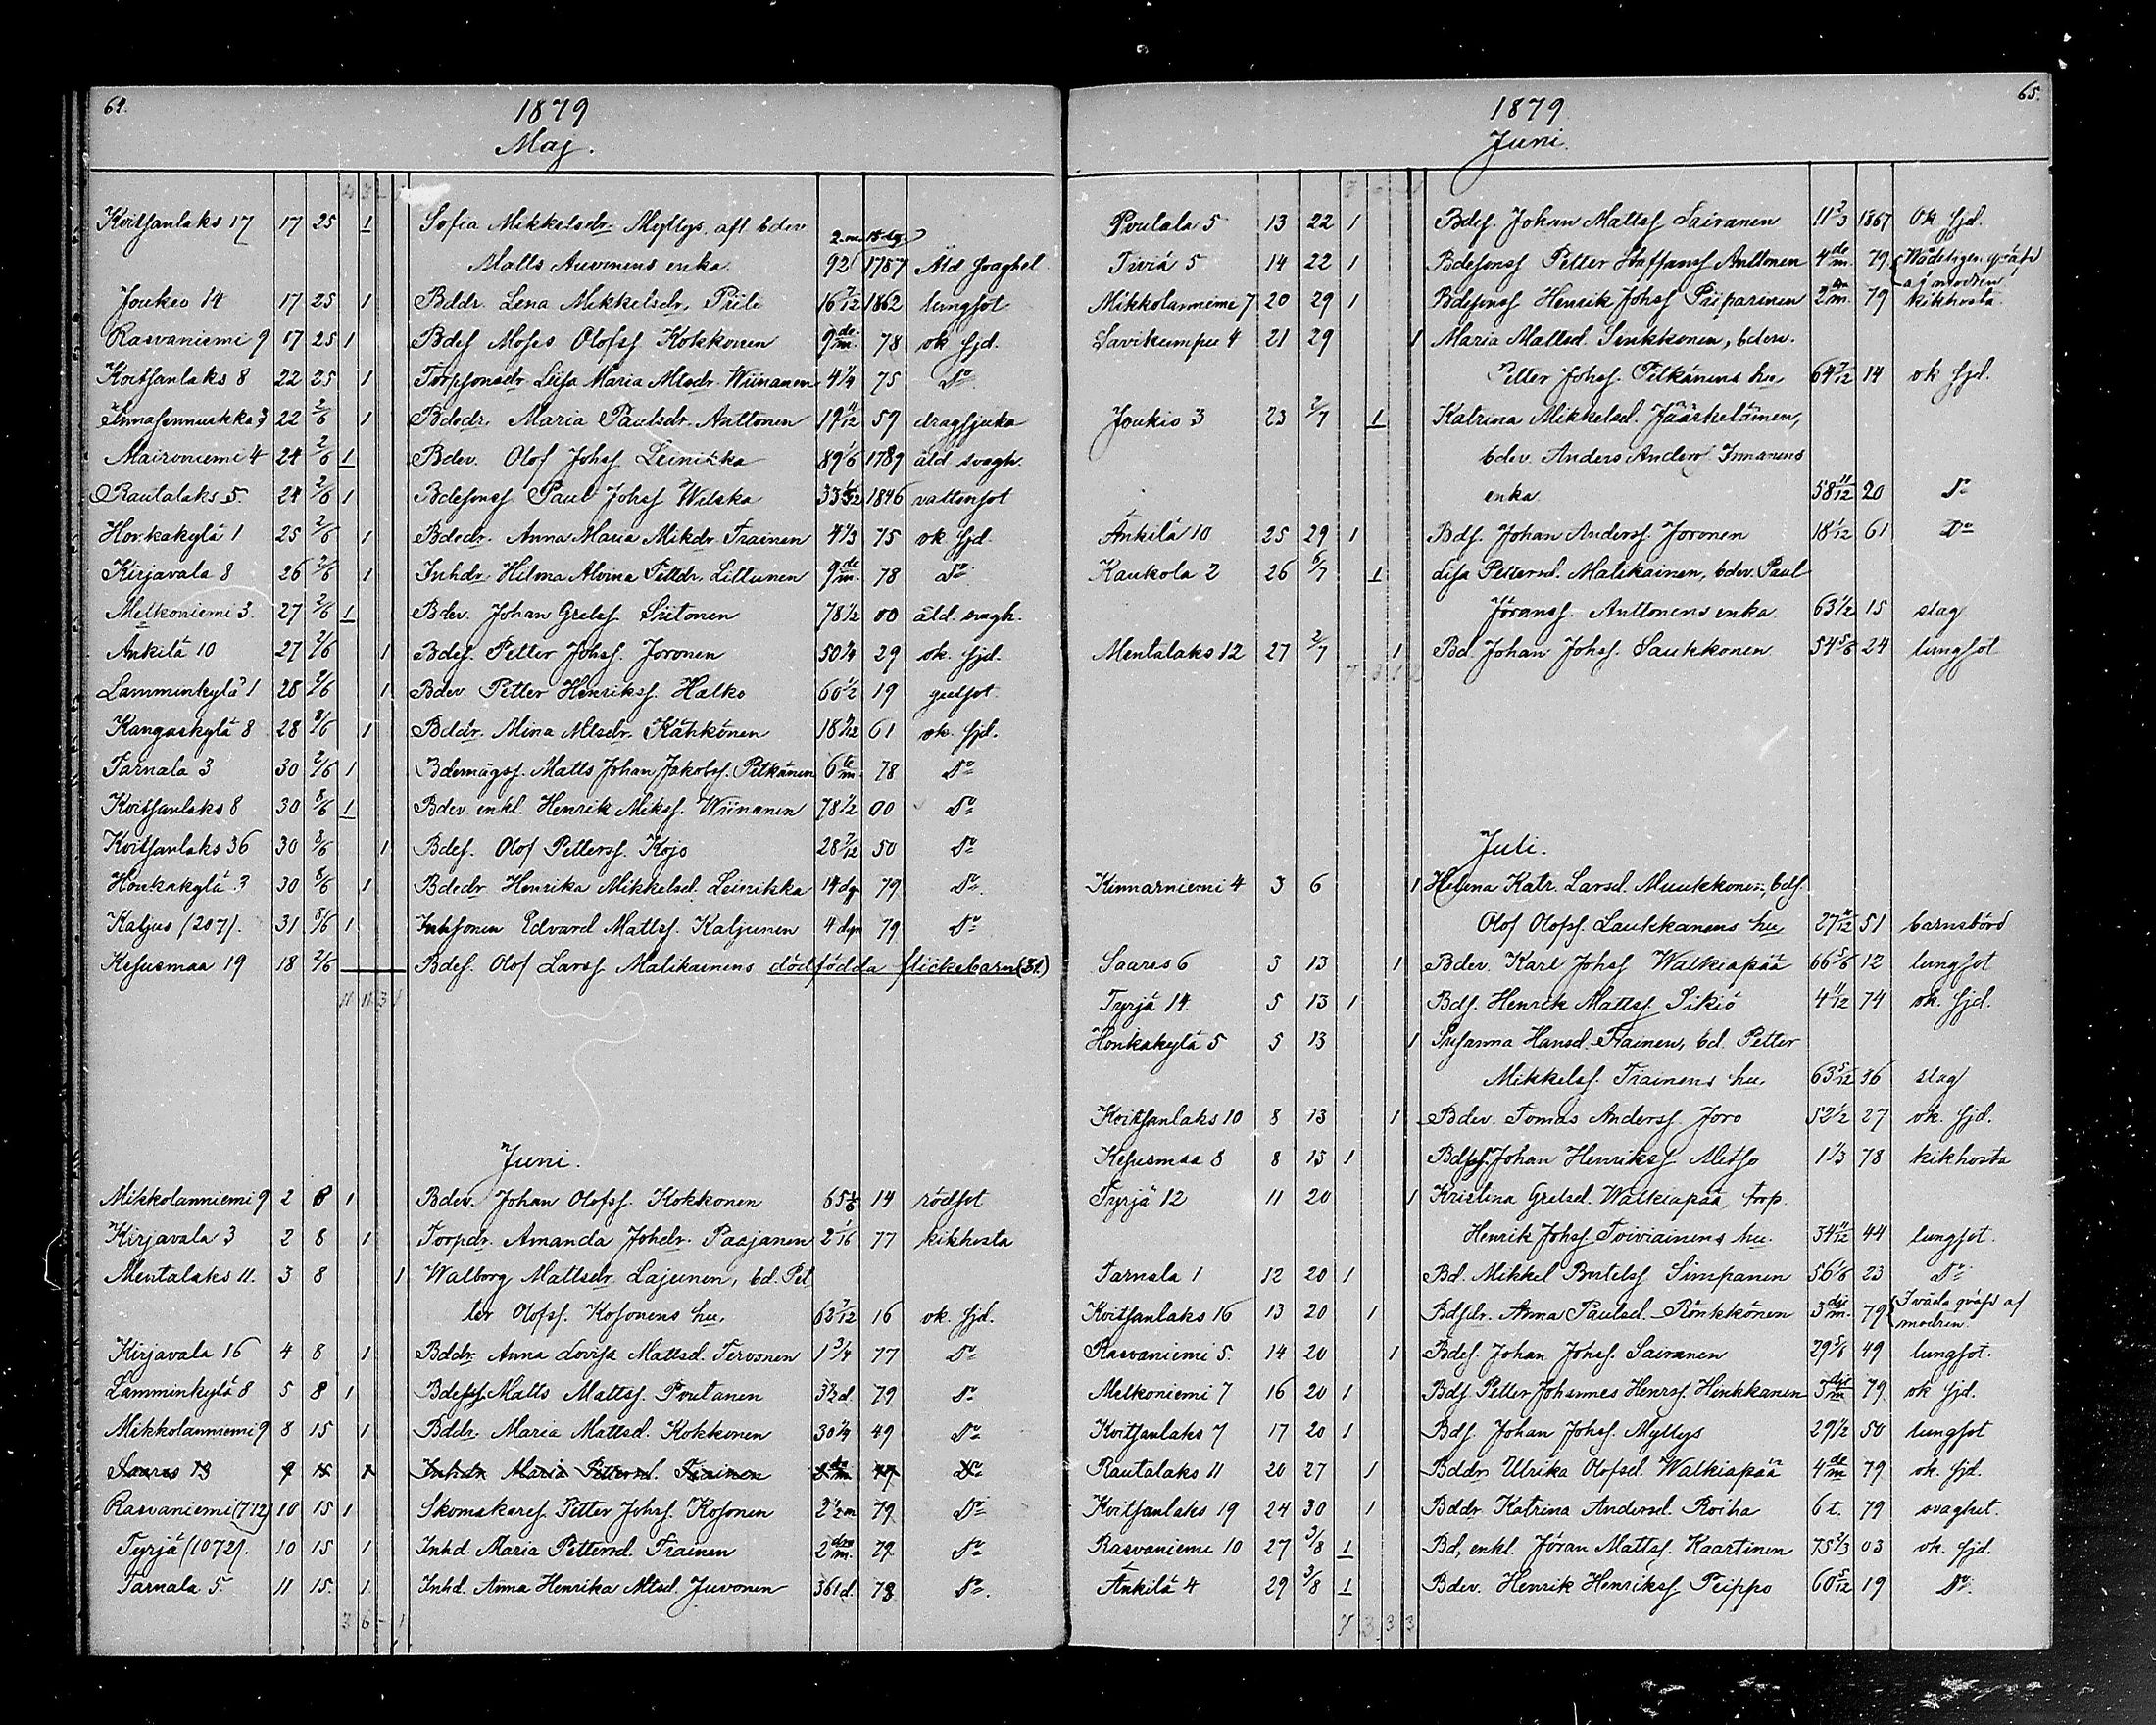 64.
1879
Maj.
Koitsanlaks 17 17 25 1 Sofia Mikkelsdr. Myllys, afl. bdev 2 m. 15 dg.
Matts Auvinens enka 92 1787 Åld. svaghet
Joukio 14 17 25 1 Bddr. Lena Mikkelsdr. Piile 16 7/12 1862 lungsot
Rasvaniemi 9 17 25 1 Bdes. Moses Olofss. Kokkonen 9 de m. 78 ok. sjd.
Koitsanlaks 8 22 25 1 Torpsonsdr. Lisa Maria Mtsdr. Wiinanen 4 1/4 75 Do
Innasennukka 3 22 2/6 1 Bdedr. Maria Paulsdr. Anttonen 19 11/12 59 dragsjuka
Maironiemi 4 24 2/6 1 Bdev. Olof Johss. Leinikka 89 1/6 1789 åld. svagh.
Rautalaks 5. 24 2/6 1 Bdesons. Paul Johss. Wilska 33 1846 vattensot
Honkakylä 1 25 2/6 1 Bdedr. Anna Maria Mikdr. Träinen 4 1/3 75 ok. sjd.
Kirjavala 8 26 2/6 1 Inhdr. Hilma Alvina Pettdr. Littunen 9 de m. 78 Do
Melkoniemi 3. 27 2/6 1 Bdev. Johan Grelss. Siitonen 78 1/2 00 åld. svagh.
Ankilä 10 27 2/6 1 Bdes. Petter Johss. Joronen 50 1/4 29 ok. sjd.
Lamminkylä 1 28 2/6 1 Bdev. Petter Henrikss. Halko 60 1/2 19 gulsot
Kangaskylä 8 28 8/6 1 Bddr. Mina Mtsdr. Kähkönen 18 61 ok. sjd.
Tarnala 3 30 2/6 1 Bdemågss. Matts Johan Jakobss. Pitkänen 6 te m. 78 Do
Koitsanlaks 8 30 8/6 1 Bdev. enkl. Henrik Mikss. Wiinanen 78 1/2 00 Do
Koitsanlaks 36 30 8/6 1 Bdes. Olof Petterss. Kojo 28 7/12 50 Do
Honkakylä 3 30 8/6 1 Bdedr. Henrika Mikkelsd. Leinikka 14 dgr 79 Do
Kaljus (207). 31 8/6 1 Inhsonen Edvard Mattss. Kaljunen 4 dgr 79 Do
Kesusmaa 19 18 2/6 Bdes. Olof Larss. Malikainens dödfödda flickebarn (31)
11 11 3 1
Juni.
Mikkolanniemi 9 2 8 1 Bdev. Johan Olofss. Kokkonen 65 14 rödsot
Kirjavala 3 2 8 1 Torpdr. Amanda Johdr. Paajanen 2 1/6 77 kikhosta
Mentalaks 11. 3 8 1 Walborg Mattsdr. Lajunen, bd. Pet
ter Olofss. Kosonens hu, 62 7/12 16 ok. sjd.
Kirjavala 16 4 8 1 Bddr. Anna Lovisa Mattsd. Tervonen 1 3/4 77 Do
Lamminkylä 8 5 8 1 Bdess. Matts Mattss. Poutanen 3 1/2 d. 79 Do
Mikkolanniemi 9 8 15 1 Bddr. Maria Mattsd. Kokkonen 30 1/4 49 Do
Saares 13 9 15 1 Inhdr. Maria Pettersd. Träinen 2 m 79 Do
Rasvaniemi (712) 10 15 1 Skomakares. Petter Johss. Kosonen 2 1/2 m 79 Do
Tyrjä (1072). 10 15 1 Inhd. Maria Pettersd. Träinen 2 dra m. 79 Do
Tarnala 5. 11 15. 1 Inhd. Anna Henrika Mtsd. Juvonen 361 d. 78 Do
3 6 - 1
65.
1879
Juni.
Poutala 5 13 22 1 Bdes. Johan Mattss. Sairanen 11 2/3 1867 Ok. sjd.
Tiviä 5 14 22 1 Bdesons. Petter Staffanss. Anttonen 4 de m. 79 Wådeligen qväfd
af modren
Mikkolanniemi 7 20 29 1 Bdesons. Henrik Johss. Piiparinen 2 m. 79 kikhosta
Savikumpu 4 21 29 1 Maria Mattsd. Sinkkonen, bdev.
Petter Johss. Pitkänens hu 64 7/12 14 ok. sjd.
Joukio 3 23 2/7 1 Katrina Mikkelsd. Jääskeläinen,
bdev. Anders Anderss. Immonens
enka 58 11/12 20 Do
Änkilä 10 25 29 1 Bds. Johan Anderss. Joronen 18 1/12 61 Do
Kaukola 2 26 6/7 1 Lisa Pettersd. Malikainen, bdev. Paul
Jöranss. Anttonens enka 63 1/2 15 slag
Mentalaks 12 27 2/7 1 Bd. Johan Johss. Saukkonen 54 5/6 24 lungsot
Juli.
Kinnarniemi 4 3 6 1 Helena Katr. Larsd. Muukkonen, bds.
Olof Olofss. Laukkanens hu 27 11/12 51 barnsbörd
Saares 6 3 13 1 Bdev. Karl Johss. Walkiapää 66 5/6 12 lungsot
Tyrjä 14. 5 13 1 Bds. Henrik Mattss. Sikiö 4 11/12 74 ok. sjd.
Honkakylä 5 5 13 1 Susanna Hansd. Träinen, bd. Petter
Mikkelss. Träinens hu. 63 5/12 36 slag
Koitsanlaks 10 8 13 1 Bdev. Tomas Anderss. Joro 52 1/2 27 ok. sjd.
Kesusmaa 8 8 15 1 Bdss. Johan Henrikss. Metso 1 1/3 78 kikhosta
Tyrjä 12 11 20 1 Kristina Grelsd. Walkiapää, torp.
Henrik Johss. Toiviainens hu. 34 11/12 44 lungsot.
Tarnala 1 12 20 1 Bd. Mikkel Bertelss. Simpanen 56 1/6 23 Do
Koitsanlaks 16 13 20 1 Bdsdr. Anna Paulsd. Rönkkönen 3 dje m. 79 I våda qväfd af
modren.
Rasvaniemi 5. 14 20 1 Bdes. Johan Johss. Sairanen 29 5/6 49 lungsot.
Melkoniemi 7 16 20 1 Bds. Petter Johannes Henrss. Hinkkanen 3 dje m 79 ok. sjd.
Koitsanlaks 7 17 20 1 Bds. Johan Johss. Myllys 29 1/2 50 lungsot
Rautalaks 11 20 27 1 Bddr. Ulrika Olofsd. Walkiapää 4 de m 79 ok. sjd.
Koitsanlaks 19 24 30 1 Bddr. Katrina Andersd. Roiha 6 t. 79 svaghet.
Rasvaniemi 10 27 3/8 1 Bd, enkl. Jöran Mattss. Kaartinen 75 2/3 03 ok. sjd.
Änkilä 4 29 3/8 1 Bdev. Henrik Henrikss. Peippo 60 5/12 19 Do
7 3 3 3